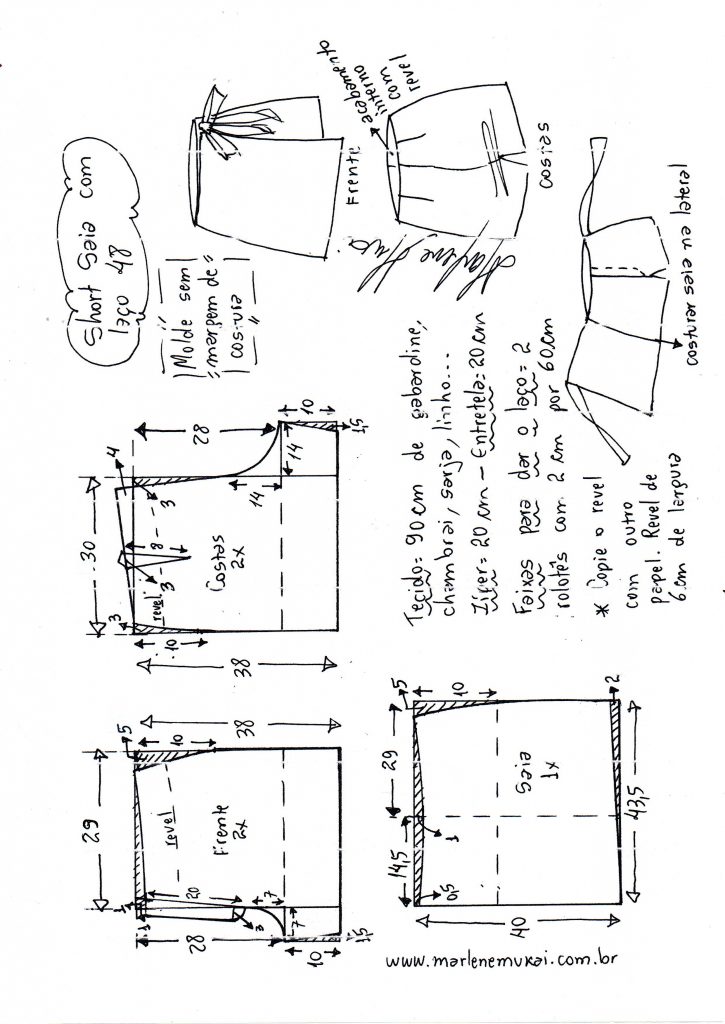 Short Saia com
laço 48
Molde sem
margem de
costura
Frente
acabamento
interno
com
revel
costas
Marlene Mukai
costurar saia na lateral
Tecido= 90cm de gabardine,
chambrai, sarja, linho...
Zíper= 20cm - Entretela= 20cm
Faixas para dar o laço= 2
rolotês com 2 cm por 60cm
* Copie o revel
com outro
papel. Revel de
6cm de largura
30
4
3
3
8
3
revel
10
38
Costas
2x
28
14
14
10
1,5
29
5
10
38
revel
Frente
2x
1
1
20
28
3
7
7
10
1,5
29
14,5
5
10
2
1
0,5
Saia
1x
40
43,5
www.marlenemukai.com.br